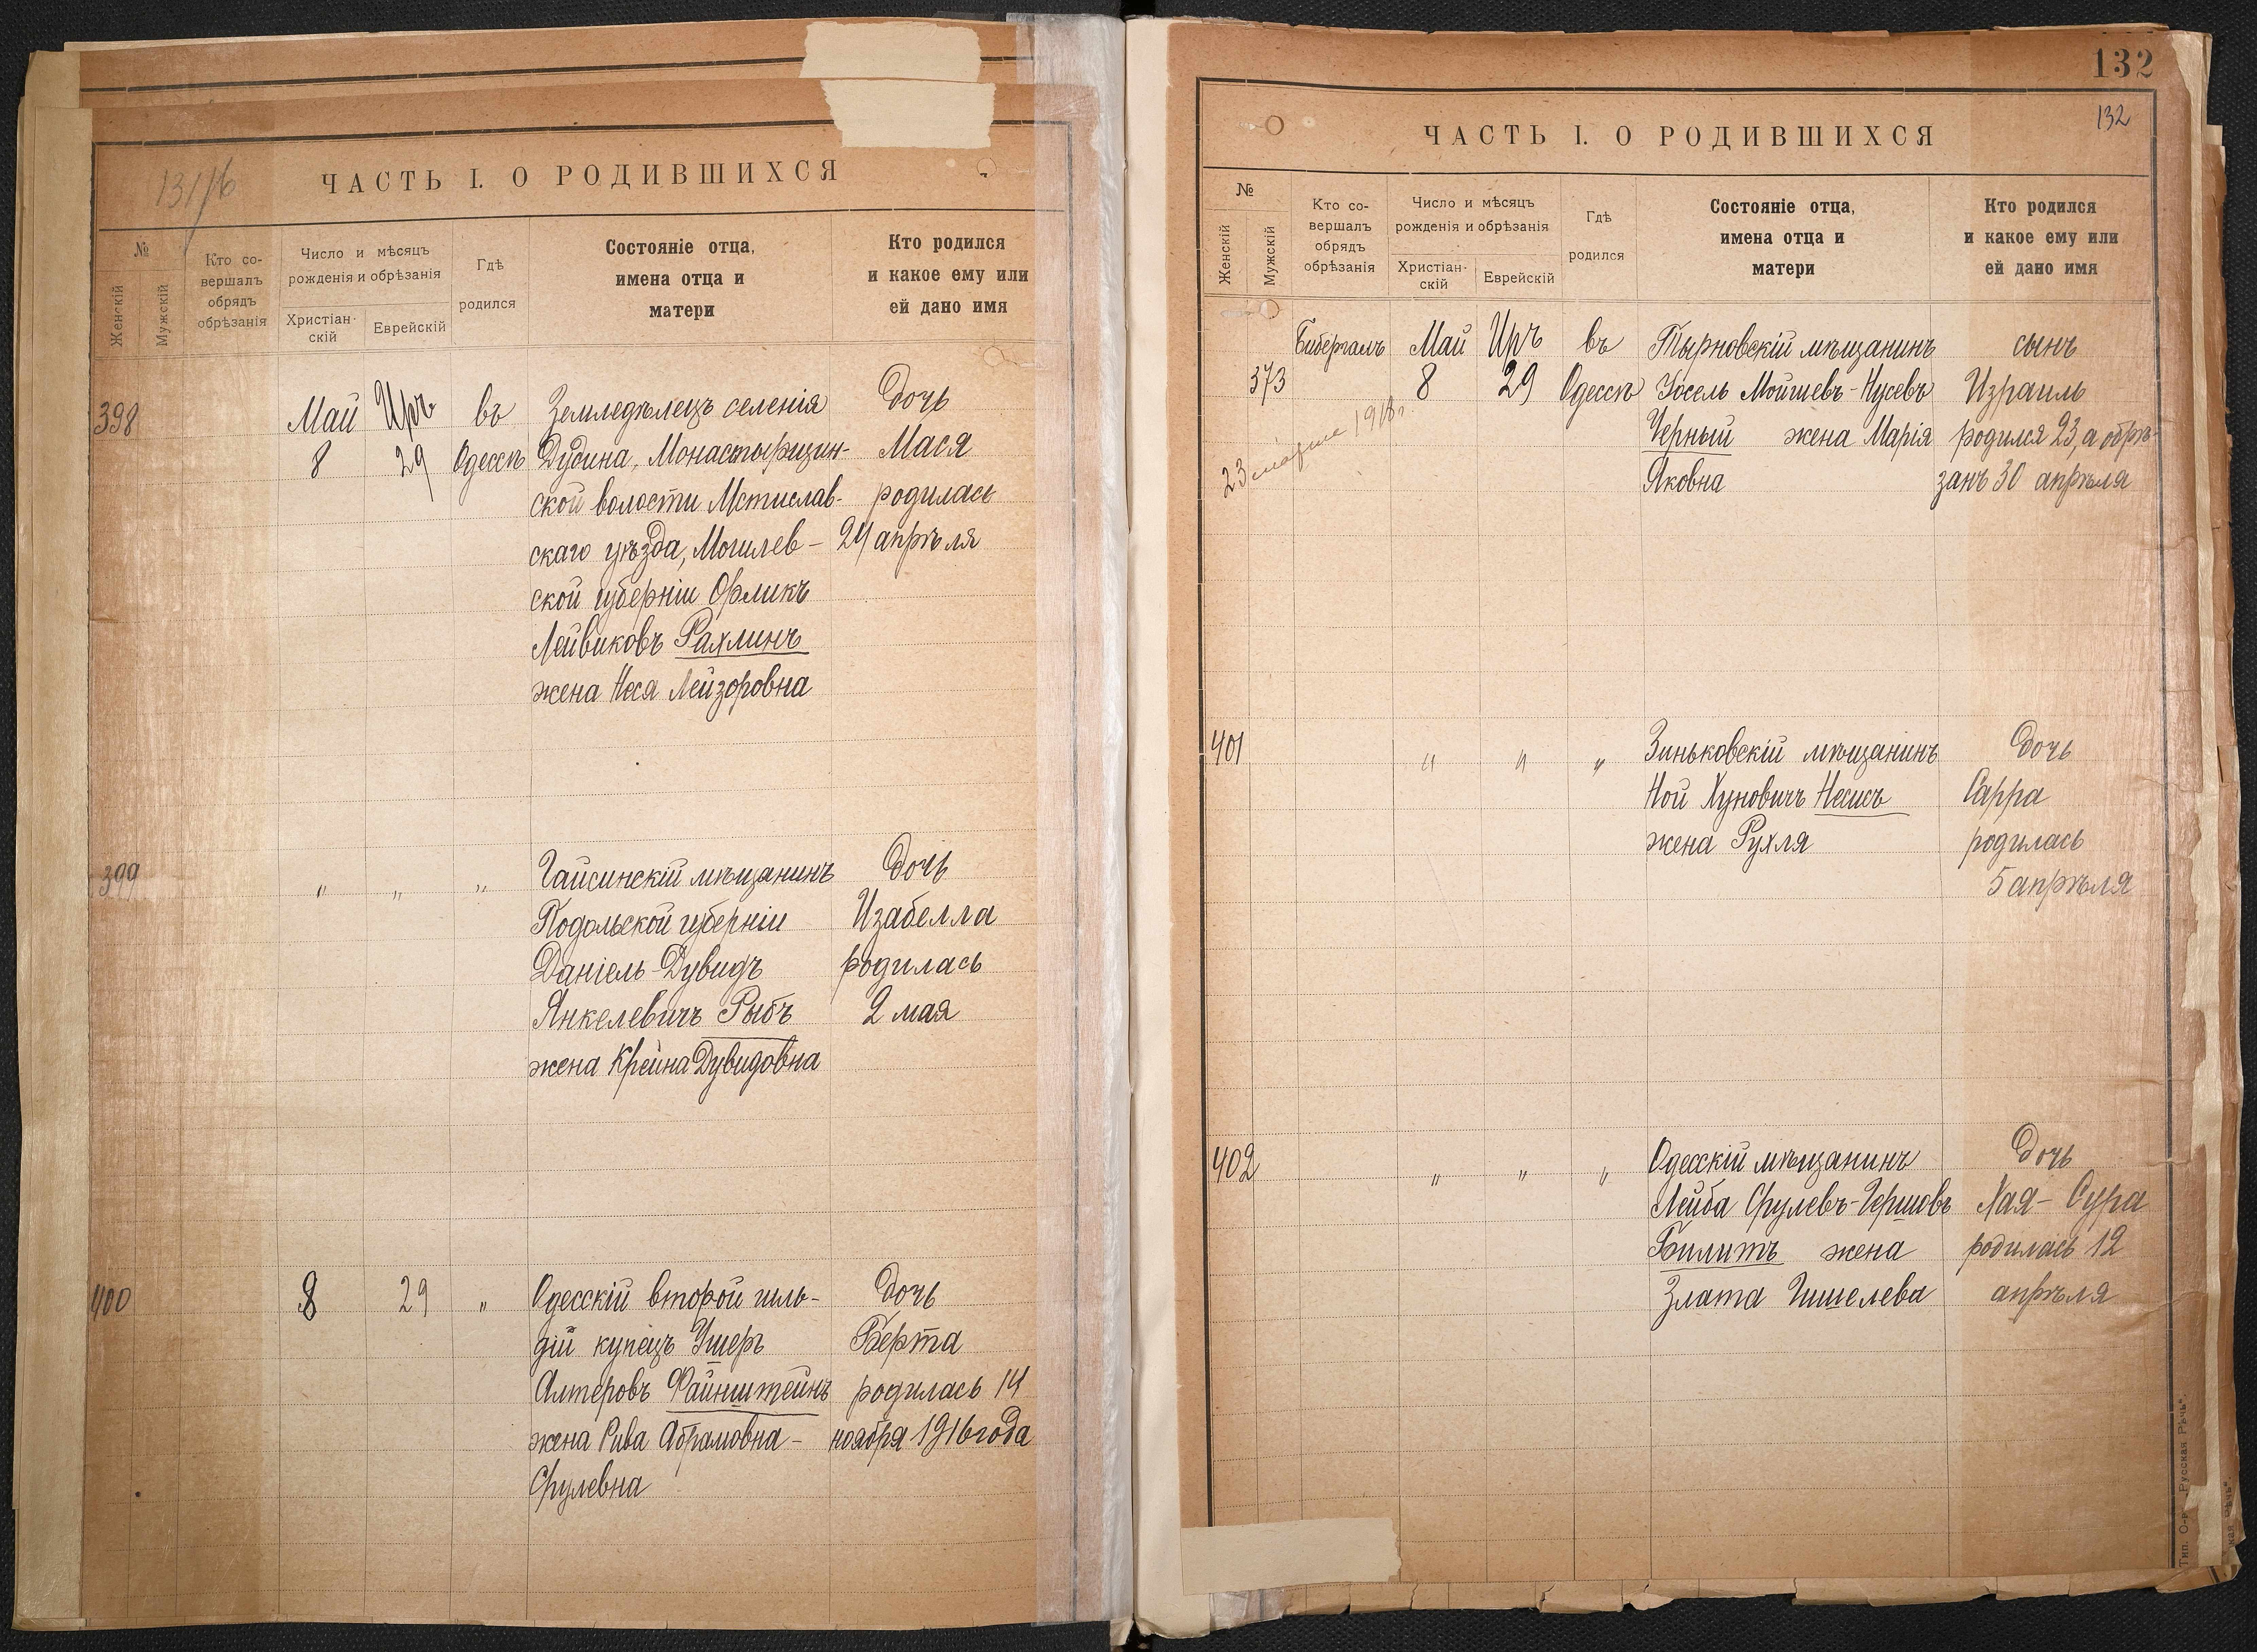 ЧАСТЬ I. О РОДИВШИХСЯ
№
Женскій
Мужскій
Кто со-
вершалъ
обрядъ
обрѣзанія
Число и мѣсяцъ
рожденія и обрѣзанія
Христіан-
скій
Еврейскій
Гдѣ
родился
Состояніе отца,
имена отца и
матери
Кто родился
и какое ему или
ей дано имя
398
Май
8
Иръ
29
въ
Одессѣ
Земледѣлецъ селенія
Дубина, Монастырщин-
ской волости Мстислав-
скаго уѣзда, Могилев-
ской губерніи Орликъ
Лейвиковъ Рахлинъ
жена Неся Лейзоровна
дочь
Мася
родилась
24 апрѣля
399
" " "
Гайсинскій мѣщанинъ
Подольской губерніи
Даніель-Дувидъ
Янкелевичъ Рыбъ
жена Крейна Дувидовна
дочь
Изабелла
родилась
2 мая
400
8
29
"
Одесскій второй гиль-
дій купецъ Ушеръ
Алтеровъ Файнштейнъ
жена Рива Абрамовна-
Срулевна
дочь
Берта
родилась 14
ноября 1916 года
132
132
ЧАСТЬ I. О РОДИВШИХСЯ
№
Женскій
Мужскій
Кто со-
вершалъ
обрядъ
обрѣзанія
Число и мѣсяцъ
рожденія и обрѣзанія
Христіан-
скій
Еврейскій
Гдѣ
родился
Состояніе отца,
имена отца и
матери
Кто родился
и какое ему или
ей дано имя
373
Бибергалъ
23 марта 1918 г.
Май
8
Иръ
29
въ
Одессѣ
Тырновскій мѣщанинъ
Іосель Мойшевъ-Нусевъ
Черный жена Марія
Яковна
сынъ
Израиль
родился 23, а обрѣ-
занъ 30 апрѣля
401
" " "
Зиньковскій мѣщанинъ
Ной Хуновичъ Несисъ
жена Рухля
дочь
Сарра
родилась
5 апрѣля
402
" " "
Одесскій мѣщанинъ
Лейба Срулевъ-Гершовъ
Билитъ жена
Злата Гишелева
дочь
Хая-Сура
родилась 12
апрѣля
Тип. О-в „Русская Рѣчь".